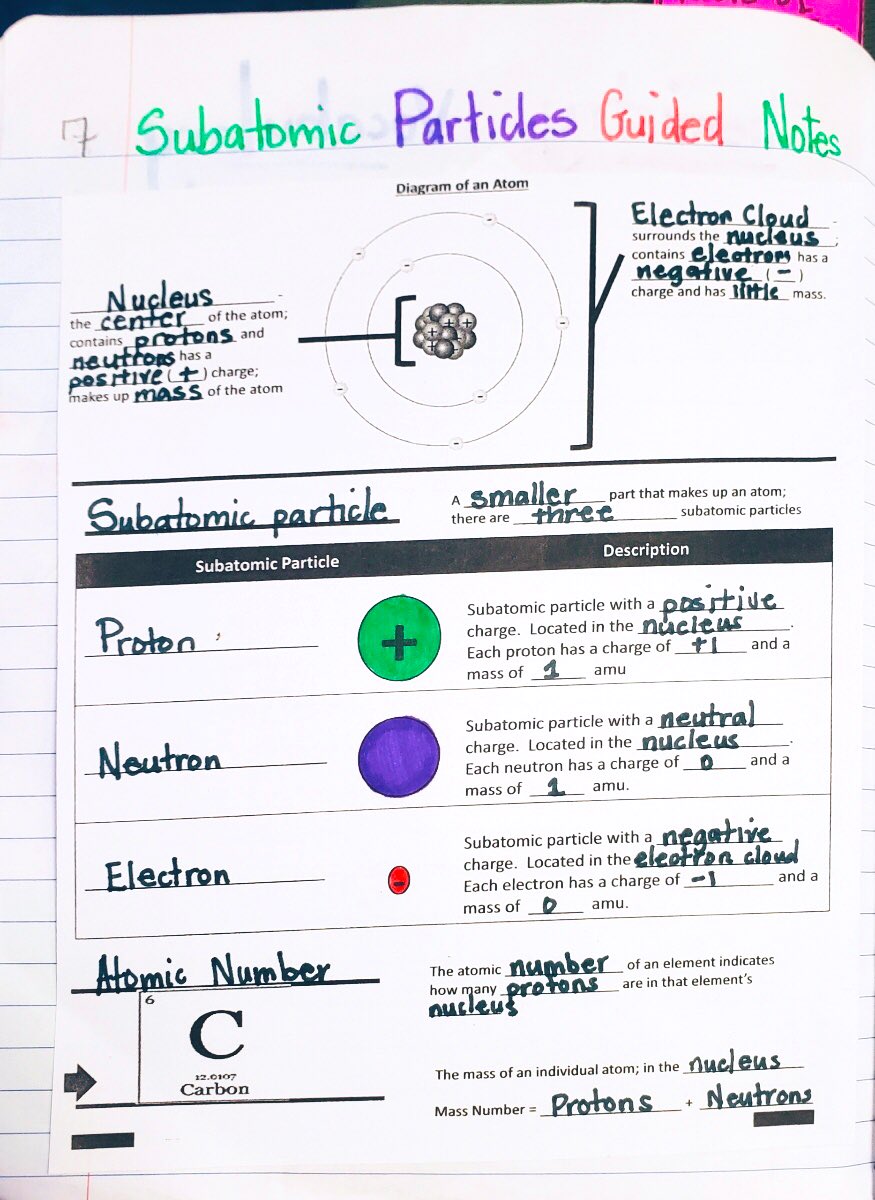 17 Subatomic Particles Guided Notes
Diagram of an Atom
Electron Cloud
surrounds the nucleus ;
contains electrons has a
negative ( - )
charge and has little mass.
Nucleus -
the center of the atom;
contains protons and
neutrons has a
positive ( + ) charge;
makes up mass of the atom
Subatomic particle
A smaller part that makes up an atom;
there are three subatomic particles
Subatomic Particle
Description
Proton
+
Subatomic particle with a positive
charge. Located in the nucleus.
Each proton has a charge of +1 and a
mass of 1 amu
Neutron
Subatomic particle with a neutral
charge. Located in the nucleus.
Each neutron has a charge of 0 and a
mass of 1 amu.
Electron
-
Subatomic particle with a negative
charge. Located in the electron cloud
Each electron has a charge of -1 and a
mass of 0 amu.
Atomic Number
The atomic number of an element indicates
how many protons are in that element's
nucleus
6
C
12.0107
Carbon
The mass of an individual atom; in the nucleus
Mass Number = Protons + Neutrons